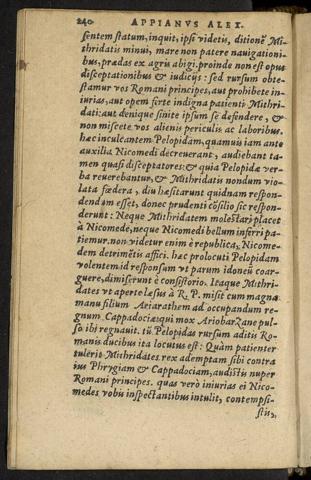 240 APPIANVS ALEX.
sentem statum, inquit, ipsi videtis, ditionē Mi-
thridatis minui, mare non patere nauigationi-
bus, prædas ex agris abigi. proinde non est opus
disceptationibus & iudiciis: sed rursum obte-
stamur vos Romani principes, aut prohibete in-
iurias, aut opem ferte indigna patienti Mithri-
dati: aut denique sinite ipsum se defendere, &
non miscete vos alienis periculis ac laboribus.
hæc inculcantem Pelopidam, quamuis iam ante
auxilia Nicomedi decreuerant, audiebant ta-
men quasi disceptatores: & quia Pelopidæ ver-
ba reuerebantur, & Mithridatis nondum vio-
lata fœdera, diu hæsitarunt quidnam respon-
dendum esset, donec prudenti cōsilio sic respon-
derunt: Neque Mithridatem molestari placet
à Nicomede, neque Nicomedi bellum inferri pa-
tiemur. non videtur enim è republica, Nicome-
dem detrimētis affici. hæc prolocuti Pelopidam
volentem id responsum vt parum idoneū coar-
guere, dimiserunt è consistorio. Itaque Mithri-
dates vt aperte læsus à R. P. misit cum magna
manu filium Aríarathem ad occupandum re-
gnum Cappadociæ: qui mox Ariobarzane pul-
so ibi regnauit. tū Pelopidas rursum aditis Ro-
manis ducibus ita locutus est: Quàm patienter
tulerit Mithridates rex ademptam sibi contra
ius Phrygiam & Cappadociam, audistis nuper
Romani principes. quas verò iniurias ei Nico-
medes vobis inspectantibus intulit, contempsi-
stis,